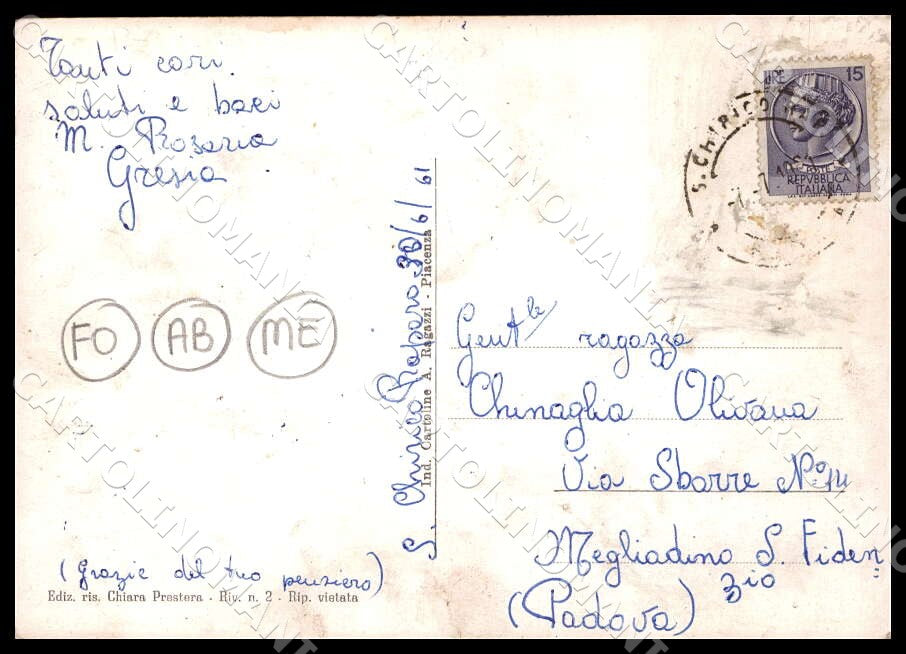 Tanti cari
saluti e baci
M. Rosaria
Gresia
FO AB ME
(Grazie del tuo pensiero)
Ediz. ris. Chiara Prestera - Riv. n. 2 - Rip. vietata
S. Chirico Raparo 30/6/61
Ind. Cartoline A. Ragazzi - Piacenza
S. CHIRICO
LIRE 15
POSTE
REPVBBLICA
ITALIANA
Gent.le ragazza
Chinaglia Olivana
Via Sbarre N° 14
Megliadino S. Fiden=
zio
(Padova)
CARTOLINOMANIA